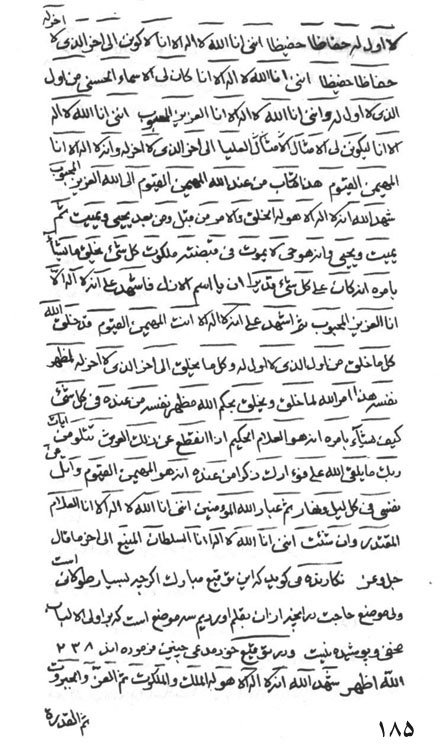 اخر له
لا اول له حفاظا حفيظا اننى انا الله لا اله الا انا لاكونن الى اخر الذى لا
حفاظا حفيظا اننى انا الله لا اله الا انا كان لى الاسماء الحسنى من اول
الذى لا اول له واننى انا الله لا اله الا انا العزيز المحبوب اننى انا الله لا اله
الا انا ليكونن لى الامثال العليا الى اخر الذى لا اخر له وانه لا اله الا انا
المهيمن القيوم هذا كتاب من عند الله المهيمن القيوم الى الله العزيز المحبوب
شهد الله انه لا اله الا هو له الخلق والامر من قبل ومن بعد يحيى ويميت ثم
يميت ويحيى وانه هو حى لا يموت فى قبضته ملكوت كل شئ يخلق ما يشاء
بامره انه كان على كل شئ قديرا ان يا اسم الازل فاشهد على انه لا اله الا
انا العزيز المحبوب ثم اشهد على انه لا اله الا انت المهيمن القيوم قد خلق الله
كل ما خلق من اول الذى لا اول له وكل ما يخلق الى اخر الذى لا اخر له لمظهر
نفسه هذا امر الله لما خلق ويخلق يحكم الله مظهر نفسه من عنده فى كل شئ
كيف يشاء بامره انه هو العلام الحكيم اذا انقطع عن ذلك العرش تتلو من آيات
ربك ما يلقى الله على فؤادك ذكرا من عنده انه هو المهيمن القيوم واتل من
نفسى فى كل ليل ونهار ثم عباد الله المؤمنين اننى انا الله لا اله الا انا العلام
المقتدر وان شئت اننى انا الله لا اله الا انا السلطان المنيع الى اخر ما قال
جل وعز نگارنده مى گويد كه اين توقيع مبارك اگرچه بسيار طولانى است
ولى موضع حاجت در اينجا از ان بقلم اورديم سه موضع است كه بر اولى الالباب
مخفى و پوشيده نيست ودر توقيع خود مدعى چنين فرموده اند ٢٣٨
الله اظهر شهد الله انه لا اله الا هو له الملك والملكوت ثم العز والجبروت
ثم القدرة
١٨٥